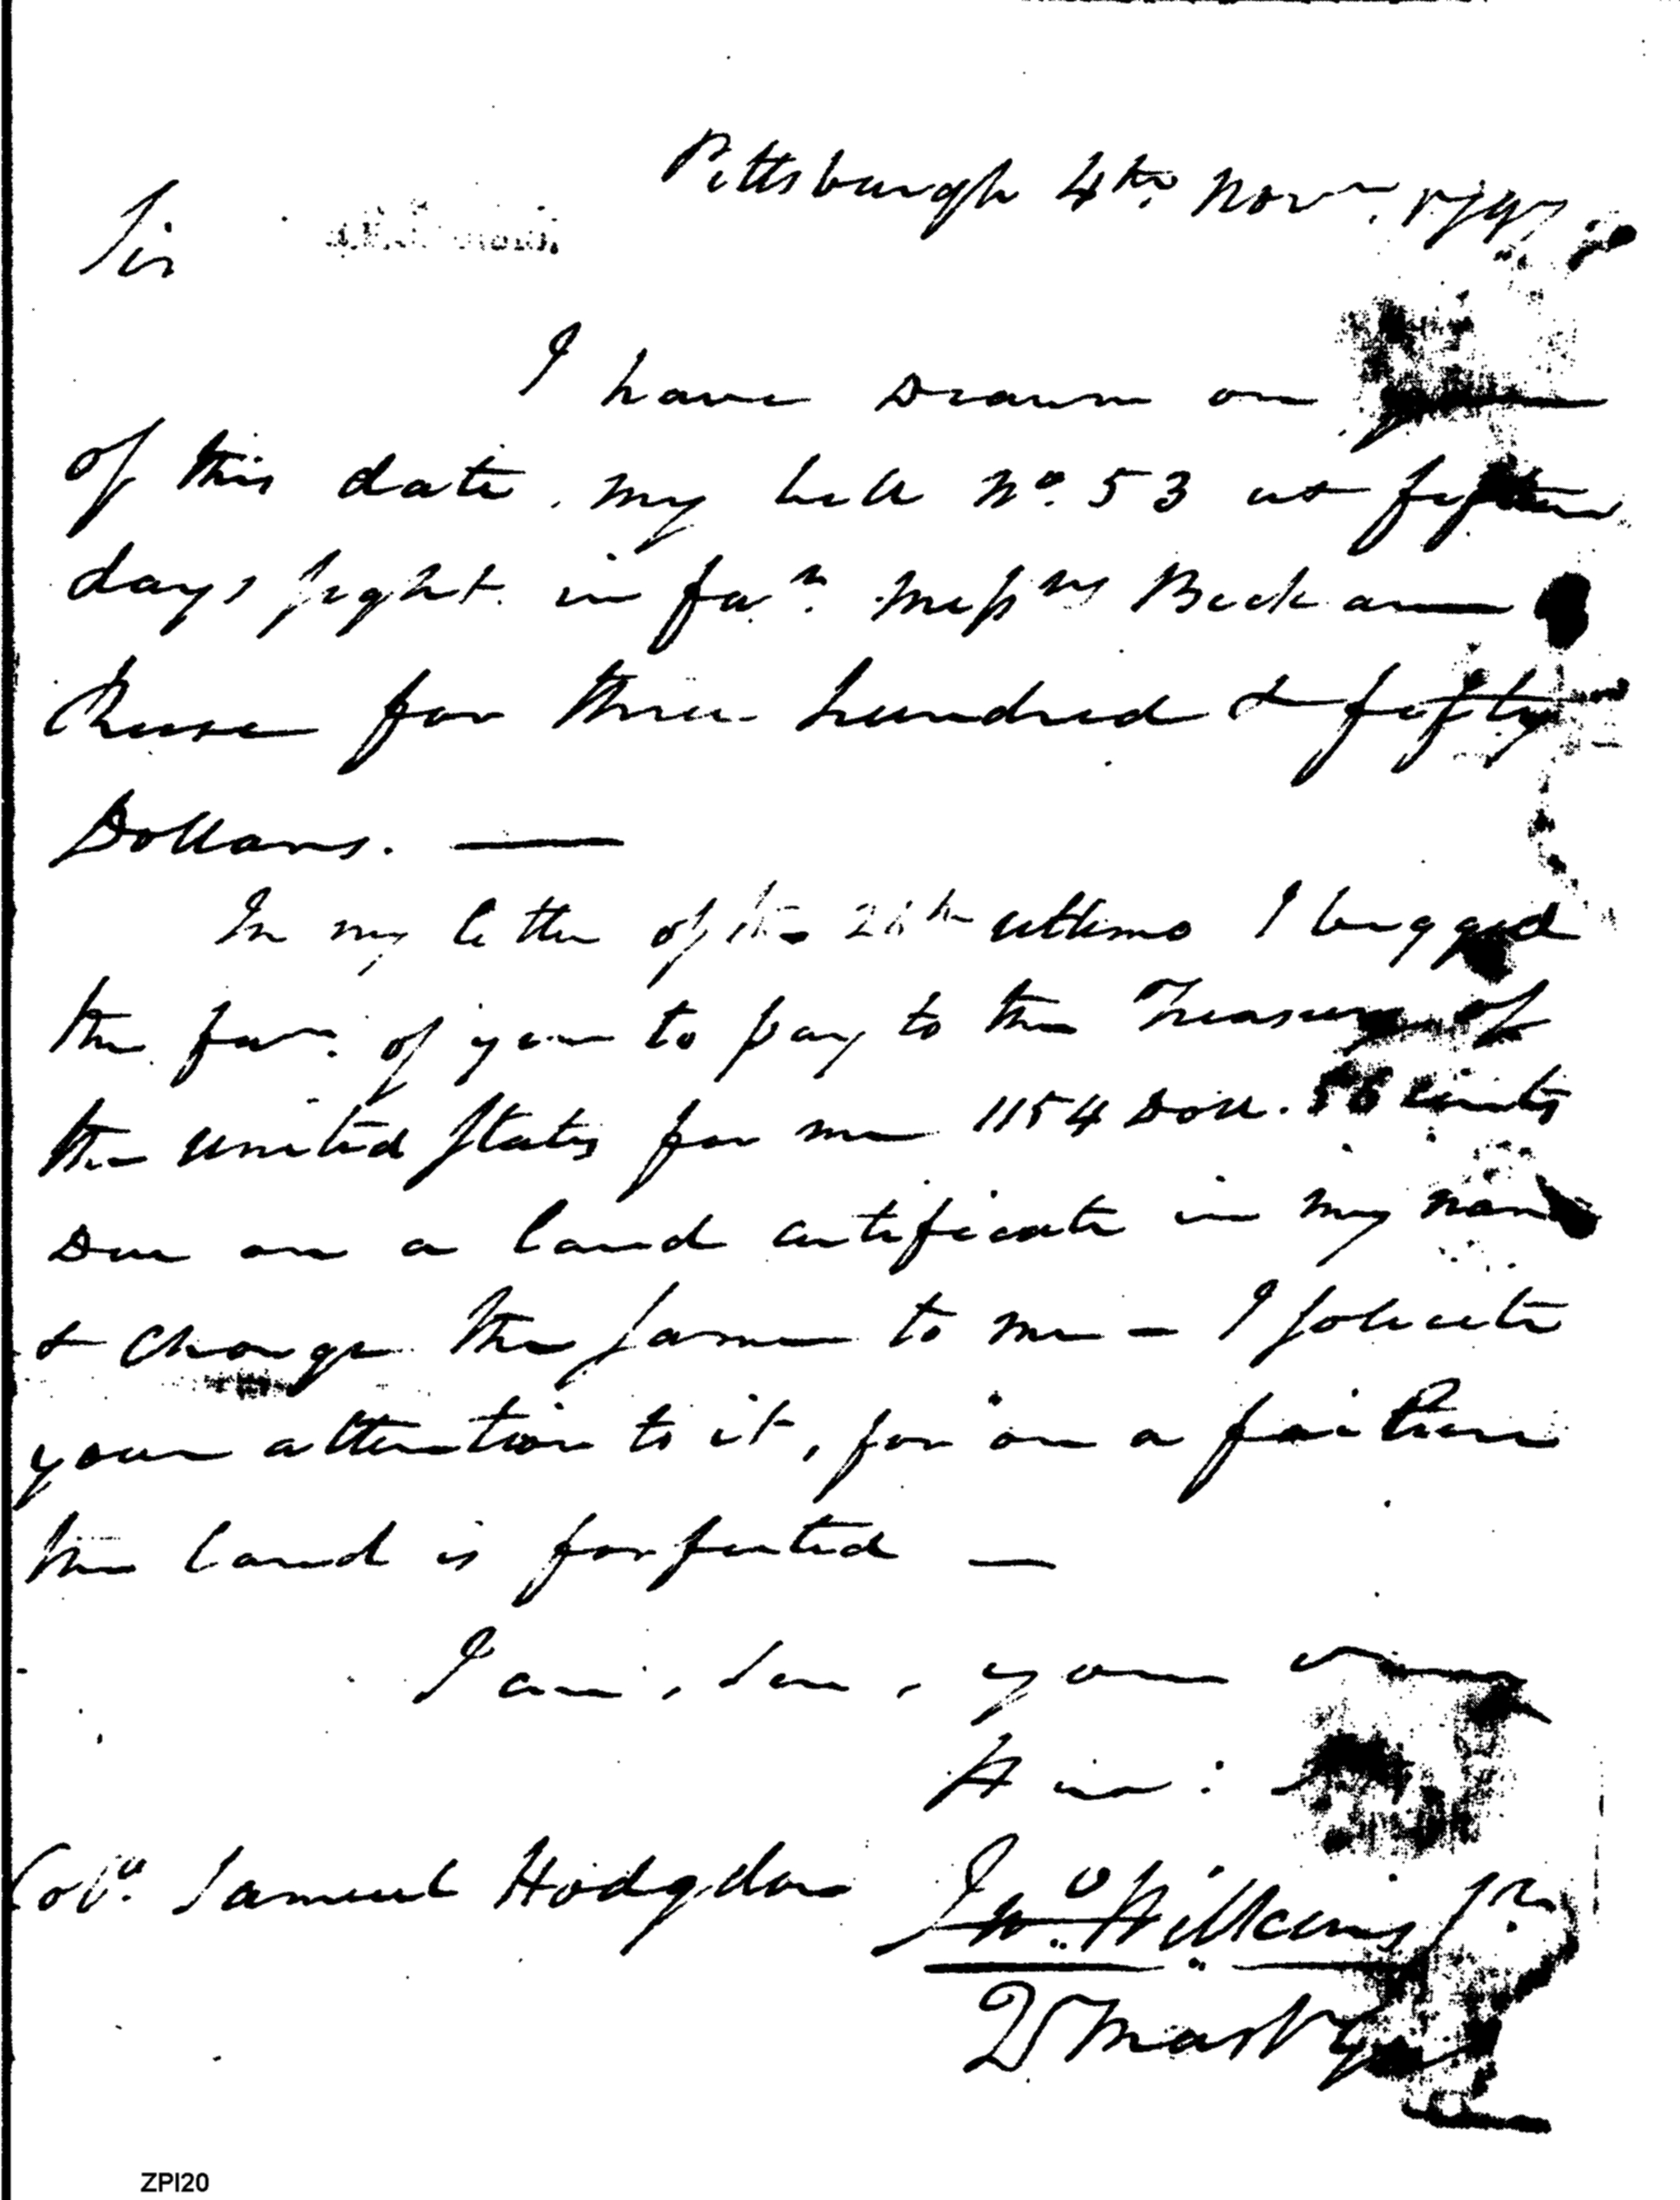 Pittsburgh 4th. Novr. 1797
Sir
I have Drawn on you
of this date, my bill No. 53 at fifteen
days sight in favr. Messrs Beck and
for three hundred & fifty
Dollars. —
In my letter of the ultimo I begged
the favr. of you to pay to the Treasury of
the United States for me 1154 Doll. 56 cents
Due on a land certificate in my name
& Charge the same to me — I solicite
your attention to it, for on a failure
the land is forfeited —
I am, Sir, your
Jno. Wilkins Jr.
Colo. Samuel Hodgdon
Q Mastr
ZPI20